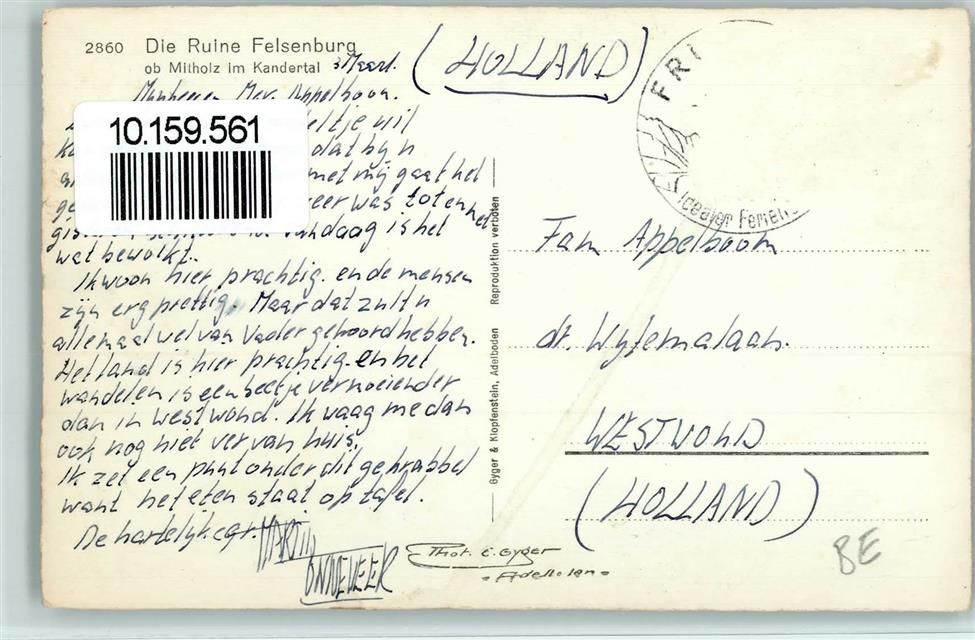 2860 Die Ruine Felsenburg
ob Mitholz im Kandertal
Maart.
(HOLLAND)
Mijnheer Mev. Appelboom.
10.159.561
eltje wil
dat bij n
met mij gaat het
eer was tot en het
vandaag is het
wat bewolkt.
Ik woon hier prachtig. en de mensen
zijn erg prettig. Maar dat zult u
allemaal wel van Vader gehoord hebben.
Het land is hier prachtig. en het
wandelen is een beetje vermoeiender
dan in Westwoud. Ik waag me dan
ook nog niet ver van huis,
Ik zet een punt onder dit gekrabbel
want het eten staat op tafel.
De hartelijke gr. MARTIN
ONDEWEER
Reproduktion verboten
Gyger & Klopfenstein, Adelboden
FRI
idealer Ferien
Fam Appelboom
dr. Wytemalaan.
WESTWOUD
(HOLLAND)
Phot. E. Gyger
Adelboden
BE